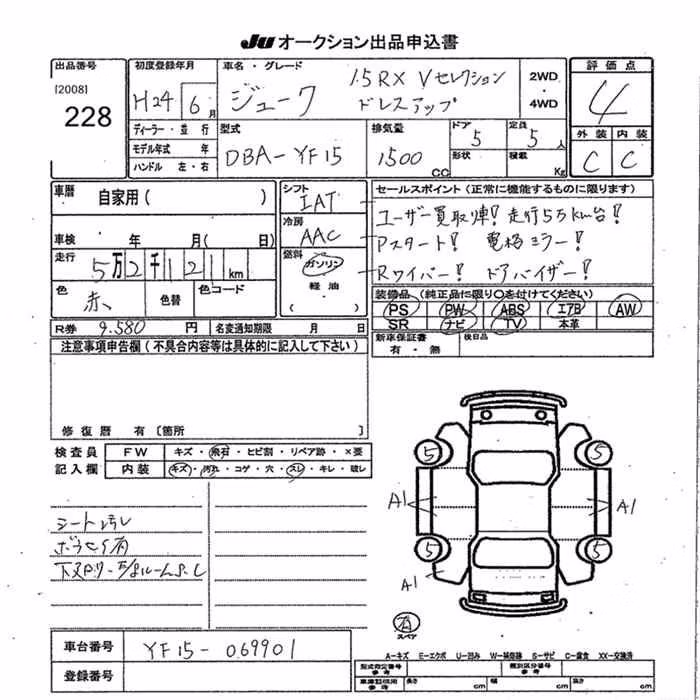 Ju オークション出品申込書
出品番号 初度登録年月 車名・グレード 評価点
[2008] 228 H24 6月 ジューク 1.5RX Vセレクション ドレスアップ 2WD・4WD 4
ディーラー・並行 型式 排気量 ドア 定員 外装 内装
モデル年式 年 DBA-YF15 1500CC 5 5人 C C
ハンドル 左・右 形状 積載 Kg
車歴 自家用( ) シフト IAT セールスポイント(正常に機能するものに限ります)
車検 年 月( 日) 冷房 AAC ユーザー買取車! 走行5万km台!
走行 5万2千121km 燃料 ガソリン・軽油 Pスタート! 電格ミラー!
色 赤 色替 色コード ( ) Rワイパー! ドアバイザー!
装備品(純正品に限り○を付けてください)
PS PW ABS エアB AW
SR ナビ TV 本革
R券 9.580円 名変通知期限 月 日 新車保証書 有・無 後日品
注意事項申告欄(不具合内容等は具体的に記入して下さい)
修復歴 有〔箇所
検査員 FW キズ・飛石・ヒビ割・リペア跡・×要
記入欄 内装 キズ・汚れ・コゲ・穴・スレ・キレ・破レ
5 5
A1 A1
シート汚レ
5 5
A1
有 スペア
A-キズ E-エクボ U-凹み W-補修跡 S-サビ C-腐食 XX-交換済
車台番号 YF15-069901 型式指定番号 参考 類別区分番号 参考
登録番号 長さ cm 幅 cm 高さ cm